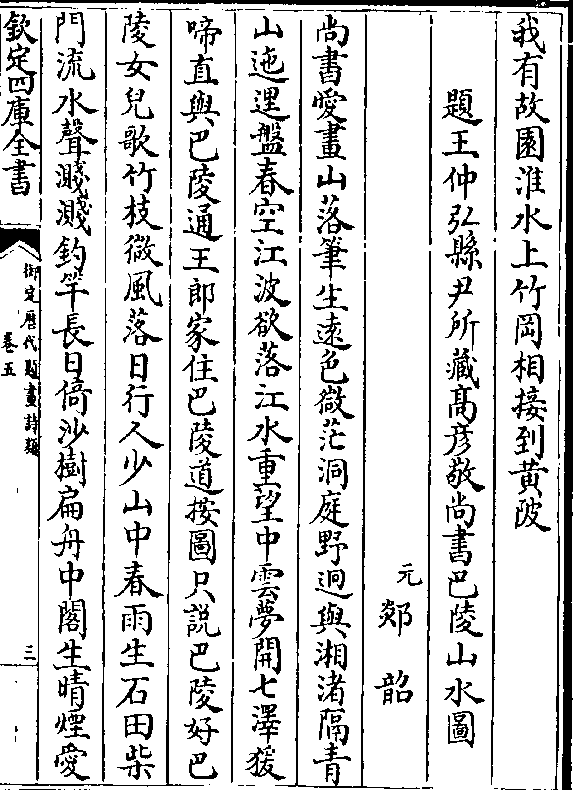 我有故園淮水上竹岡相接到黄陂
題王仲弘縣尹所藏髙彦敬尚書巴陵山水圖
元 郯韶
尚書愛畫山落筆生遠色微茫洞庭野迥與湘渚隔青
山迤逦盤春空江波欲落江水重望中雲夢開七澤猨
啼直與巴陵通王郎家住巴陵道按圖只説巴陵好巴
陵女兒歌竹枝微風落日行人少山中春雨生石田柴
門流水聲濺濺釣竿長日倚沙樹扁舟中閣生晴煙愛
欽定四庫全書
御定歴代題畫詩類
卷五
三